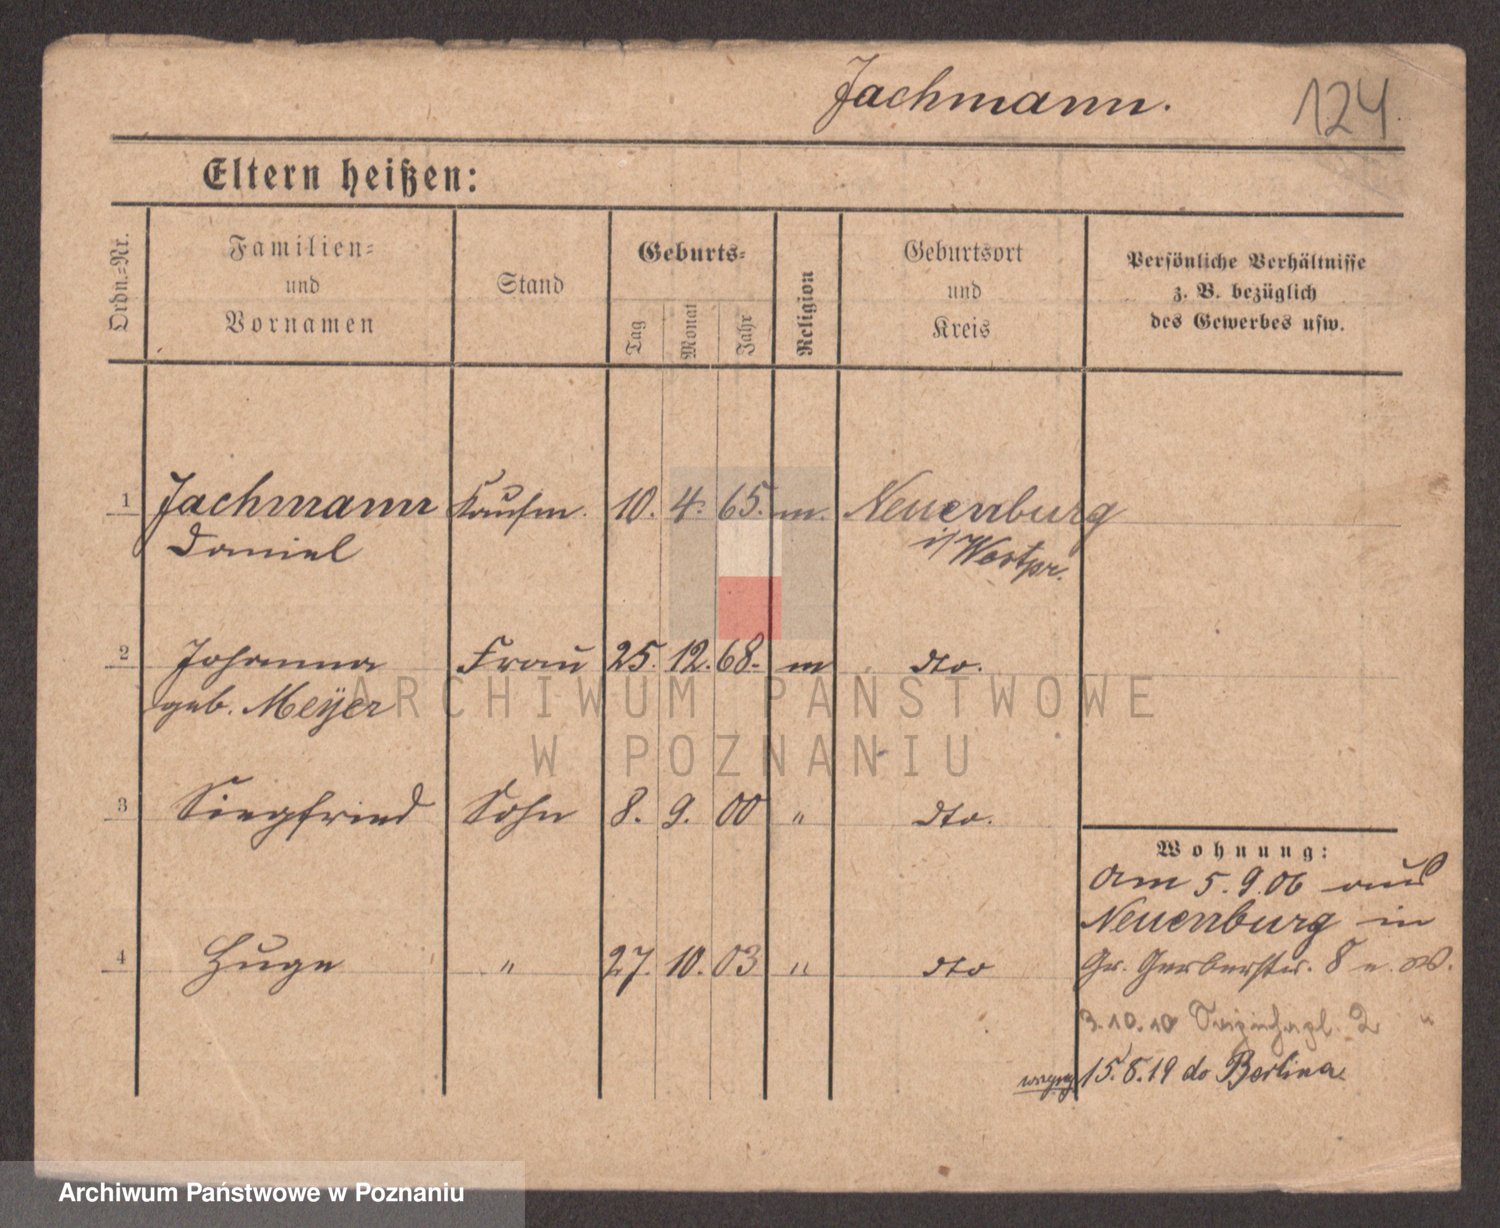 Jachmann.
124
Eltern heißen:
Ordn.=Nr.
Familien=
und
Vornamen
Stand
Geburts=
Tag
Monat
Jahr
Religion
Geburtsort
und
Kreis
Persönliche Verhältnisse
z. B. bezüglich
des Gewerbes usw.
1 Jachmann Kaufm. 10. 4. 65. m. Neuenburg
Daniel i/Westpr.
2 Johanna Frau 25. 12. 68. m dto.
geb. Meÿer
ARCHIWUM PAŃSTWOWE
W POZNANIU
3 Siegfried Sohn 8. 9. 00 " dto.
Wohnung:
Am 5. 9. 06 aus
Neuenburg in
4 Hugo " 27. 10. 03 " dto
Gr. Gerberstr. 8 W.
3.10.10 2 "
15.8.19 do Berlina.
Archiwum Państwowe w Poznaniu